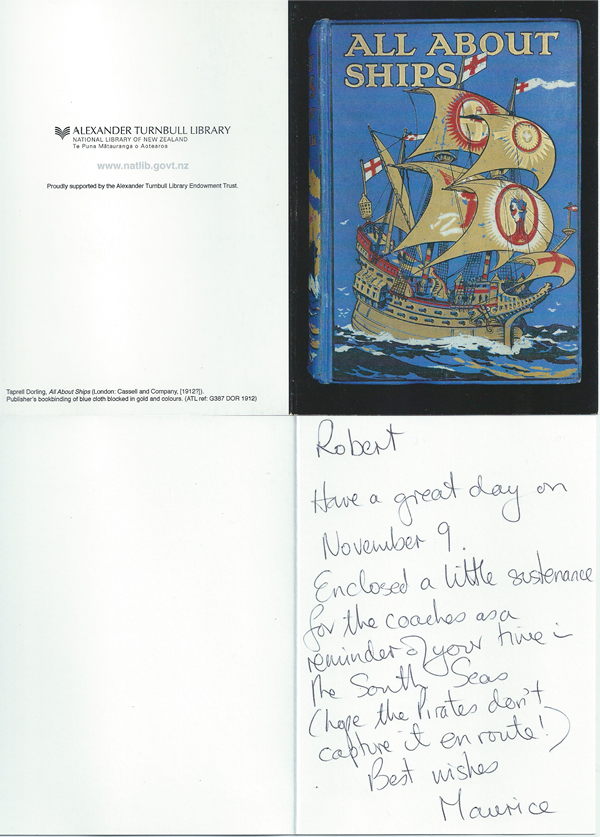 ALEXANDER TURNBULL LIBRARY
NATIONAL LIBRARY OF NEW ZEALAND
Te Puna Mātauranga o Aotearoa
www.natlib.govt.nz
Proudly supported by the Alexander Turnbull Library Endowment Trust.
Taprell Dorling, All About Ships (London: Cassell and Company, [1912?]).
Publisher's bookbinding of blue cloth blocked in gold and colours. (ATL ref: G387 DOR 1912)
ALL ABOUT
SHIPS
Robert
Have a great day on
November 9.
Enclosed a little sustenance
for the coaches as a
reminder of your time in
the South Seas
(hope the Pirates don't
capture it en route!)
Best wishes
Maurice